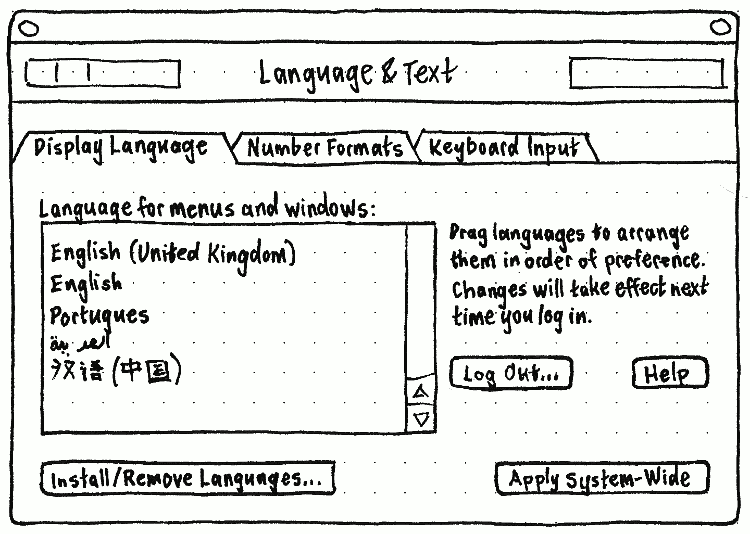 Language & Text
Display Language
Number Formats
Keyboard Input
Language for menus and windows:
English (United Kingdom)
English
Portugues
العربية
汉语 (中国)
Drag languages to arrange
them in order of preference.
Changes will take effect next
time you log in.
Log Out...
Help
Install/Remove Languages...
Apply System-Wide